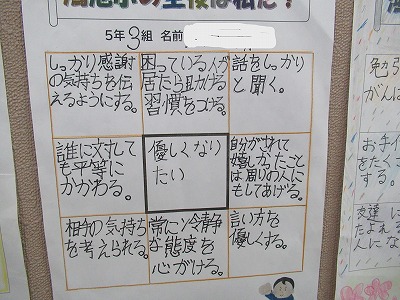 5年3組 名前
しっかり感謝
の気持ちを伝
えるようにする。
困っている人が
居たら助ける
習慣をつける。
話をしっかり
と聞く。
誰に対して
も平等に
かかわる。
優しくなり
たい
自分がされて
嬉しかったこと
は周りの人に
もしてあげる。
相手の気持ち
を考えられる。
常に冷静
な態度を
心がける。
言い方を
優しくする。
勉引
がんは
お手イ
をたくさ
する。
友達に
たよれる
人にな